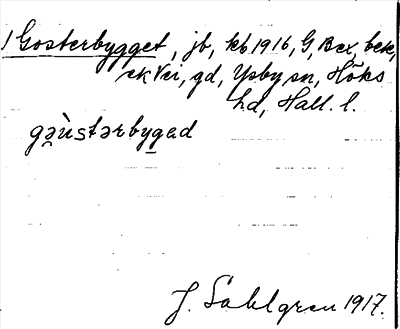 1 Gosterbygget, jb, kb 1916, G, Bex, bek,
ek Vei, gd, Ysby sn, Höks
hd, Hall. l.
gə̯ùstərbygəd
J. Sahlgren 1917.